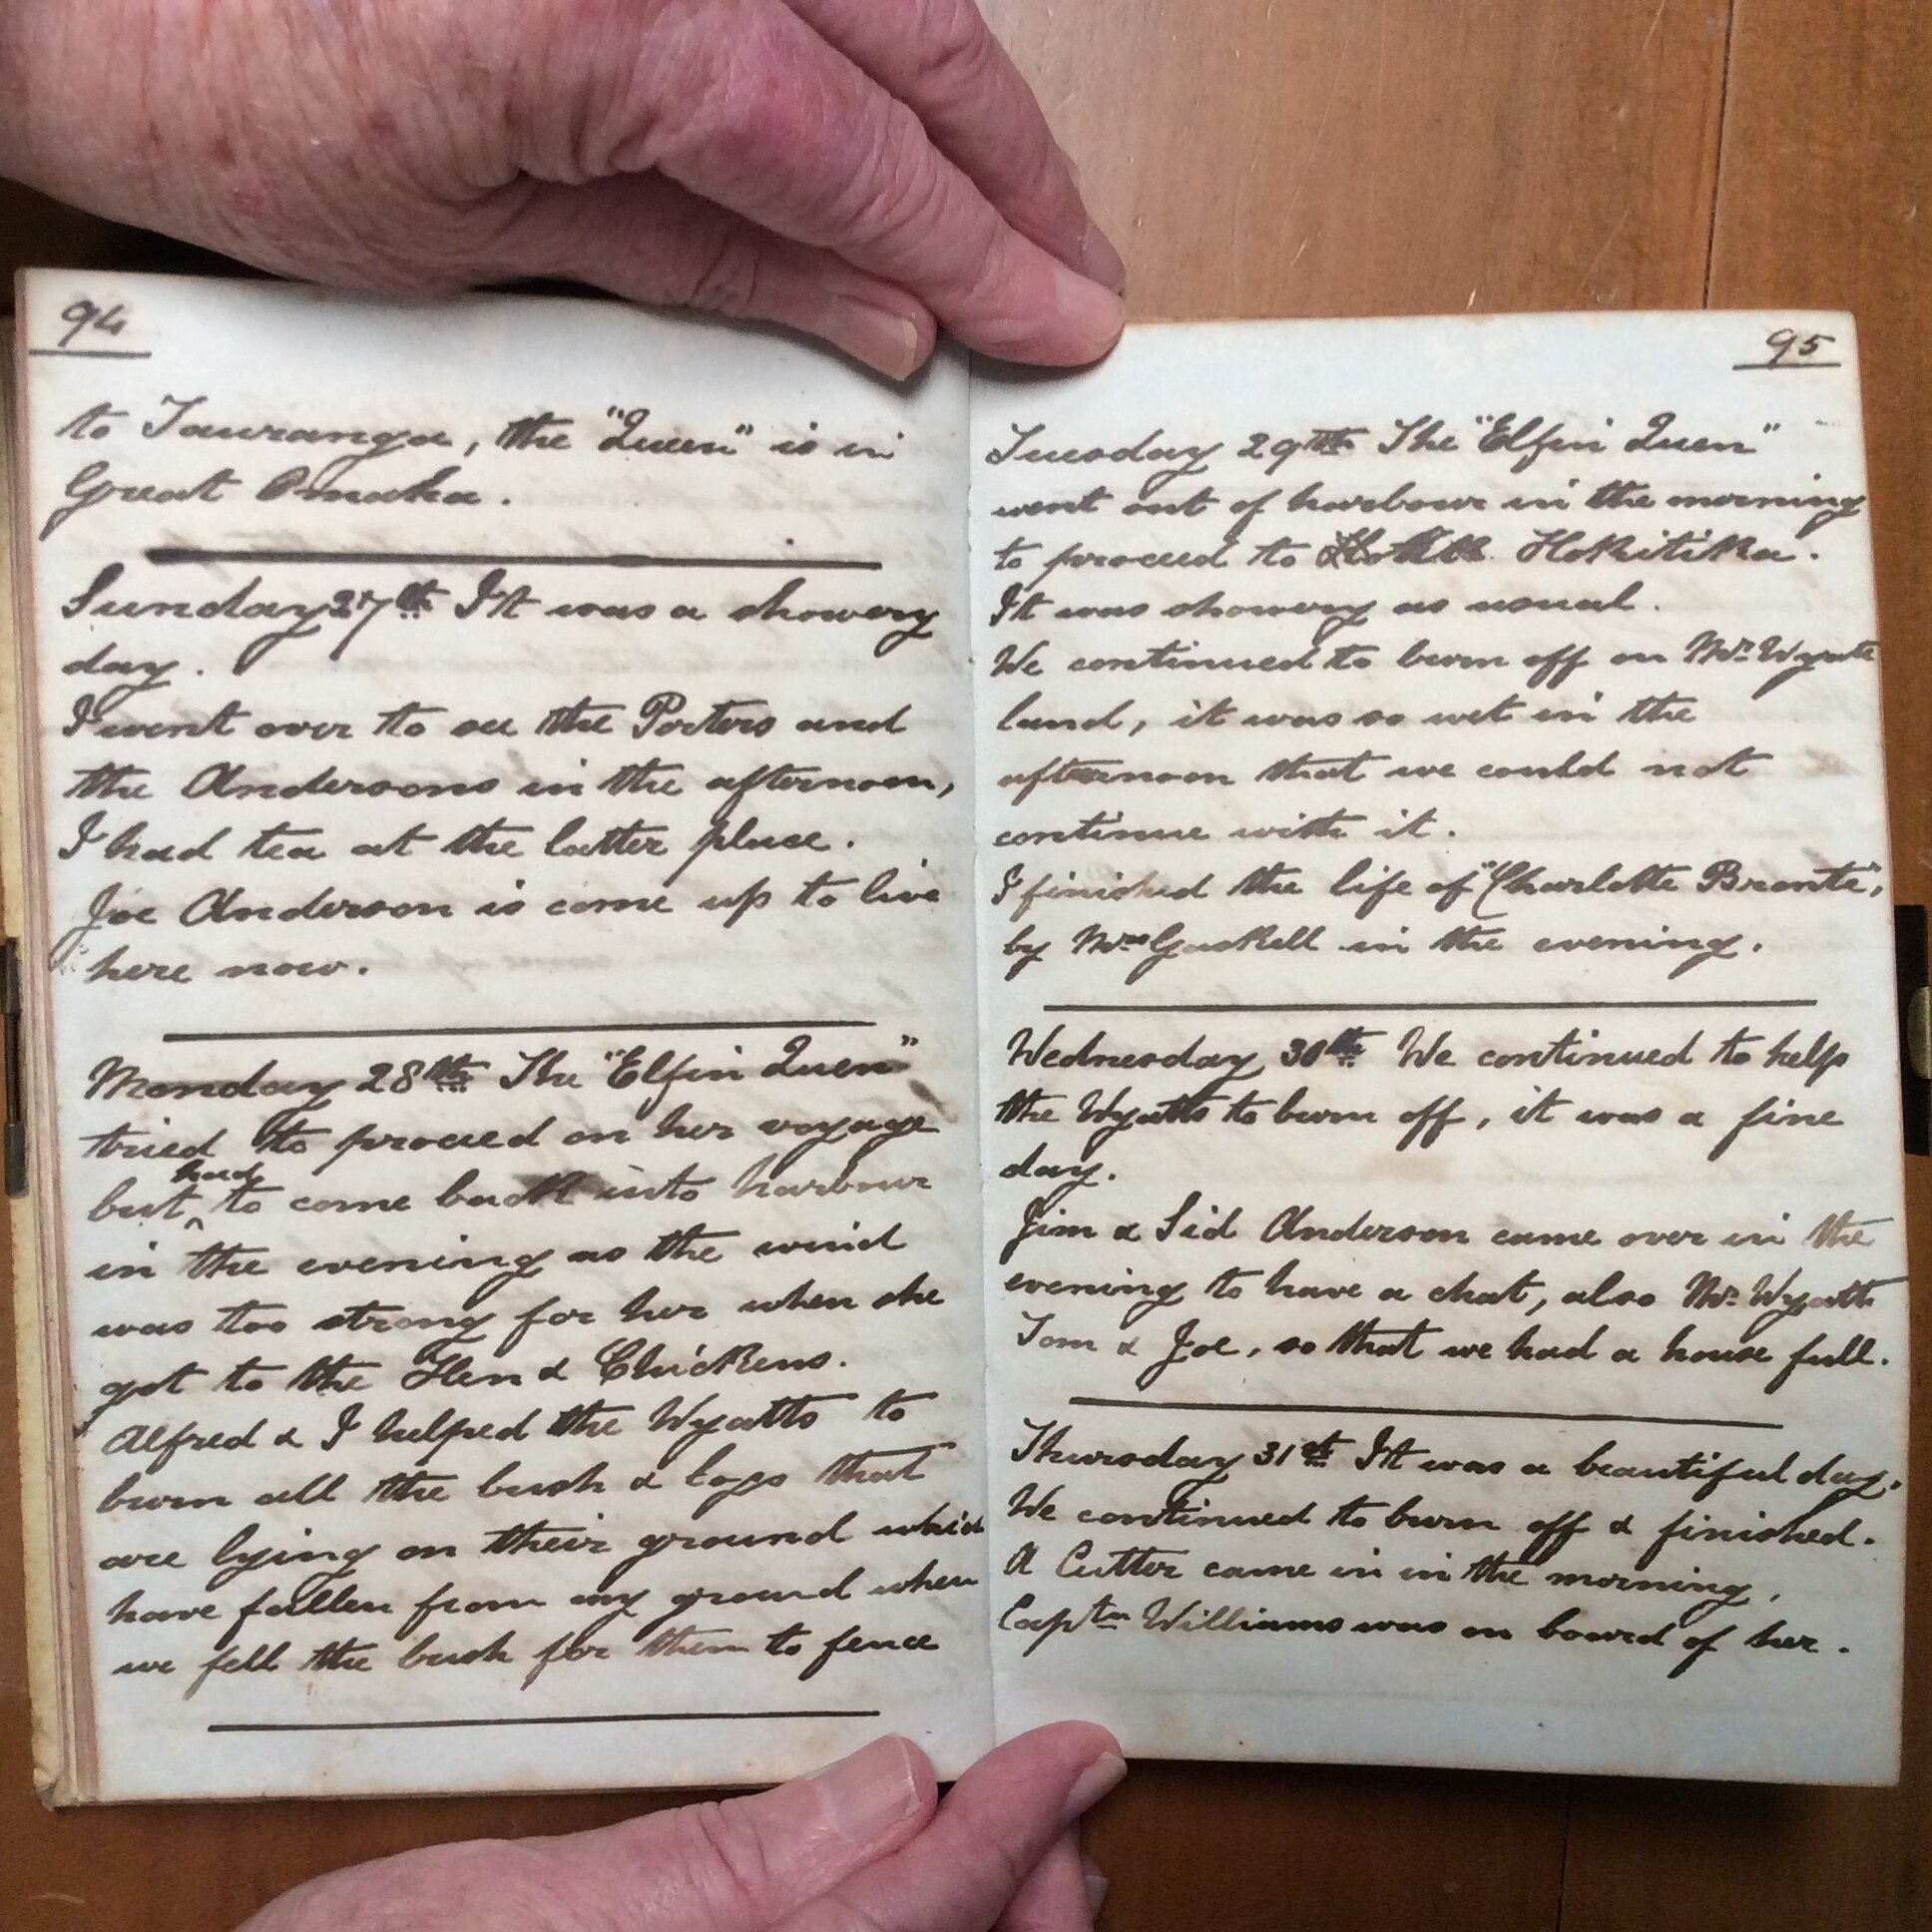 94
to Tauranga, the "Queen" is in
Great Omaha.
Sunday 27th It was a showery
day.
I went over to see the Porters and
the Andersons in the afternoon,
I had tea at the latter place.
Joe Anderson is come up to live
here now.
Monday 28th The "Elfin Quen"
tried to proceed on her voyage
had
but ^ to come back into harbour
in the evening as the wind
was too strong for her when she
got to the Hen & Chickens.
Alfred & I helped the Wyatts to
burn all the bush & logs that
are lying on their ground which
have fallen from my ground when
we fell the bush for them to fence
95
Tuesday 29th The "Elfin Quen"
went out of harbour in the morning
to proceed to Hokitika.
It was showery as usual.
We continued to burn off on Mr. Wyatts
land, it was so wet in the
afternoon that we could not
continue with it.
I finished the life of "Charlotte Bronte",
by Mrs Gaskell in the evening.
Wednesday 30th We continued to help
the Wyatts to burn off, it was a fine
day.
Jim & Sid Anderson came over in the
evening to have a chat, also Mr. Wyatt
Tom & Joe, so that we had a house full.
Thursday 31st It was a beautiful day.
We continued to burn off & finished.
A Cutter came in in the morning,
Captn Williams was on board of her.